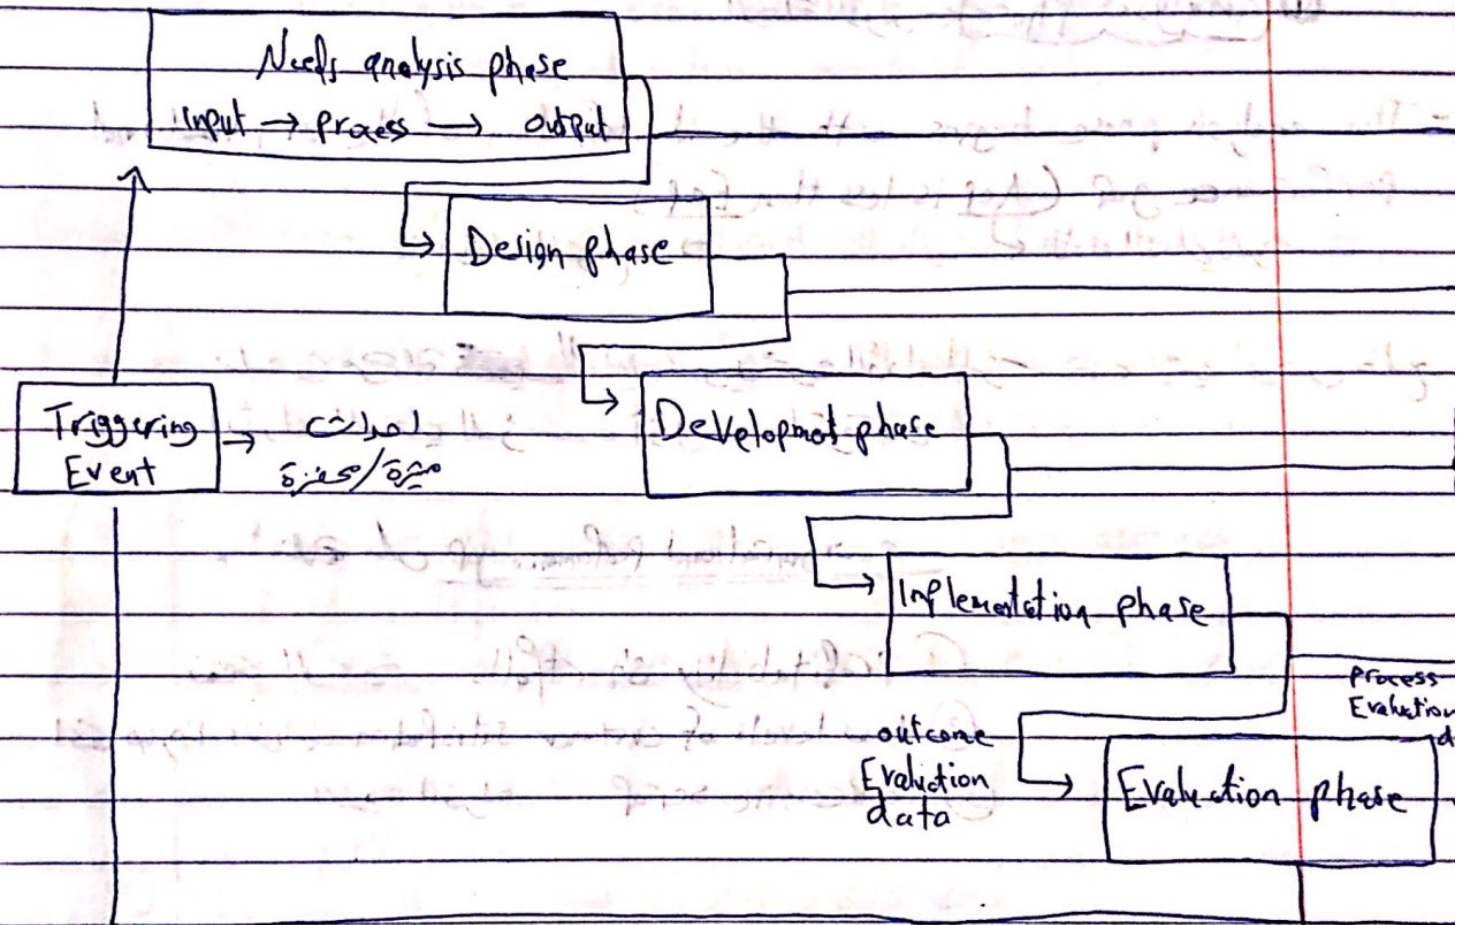 Needs analysis phase
input → process → output
Design phase
Triggering
Event
→ احداث
مثيرة/محفزة
Development phase
Implementation phase
process
Evaluation
d
outcome
Evaluation
data
Evaluation phase